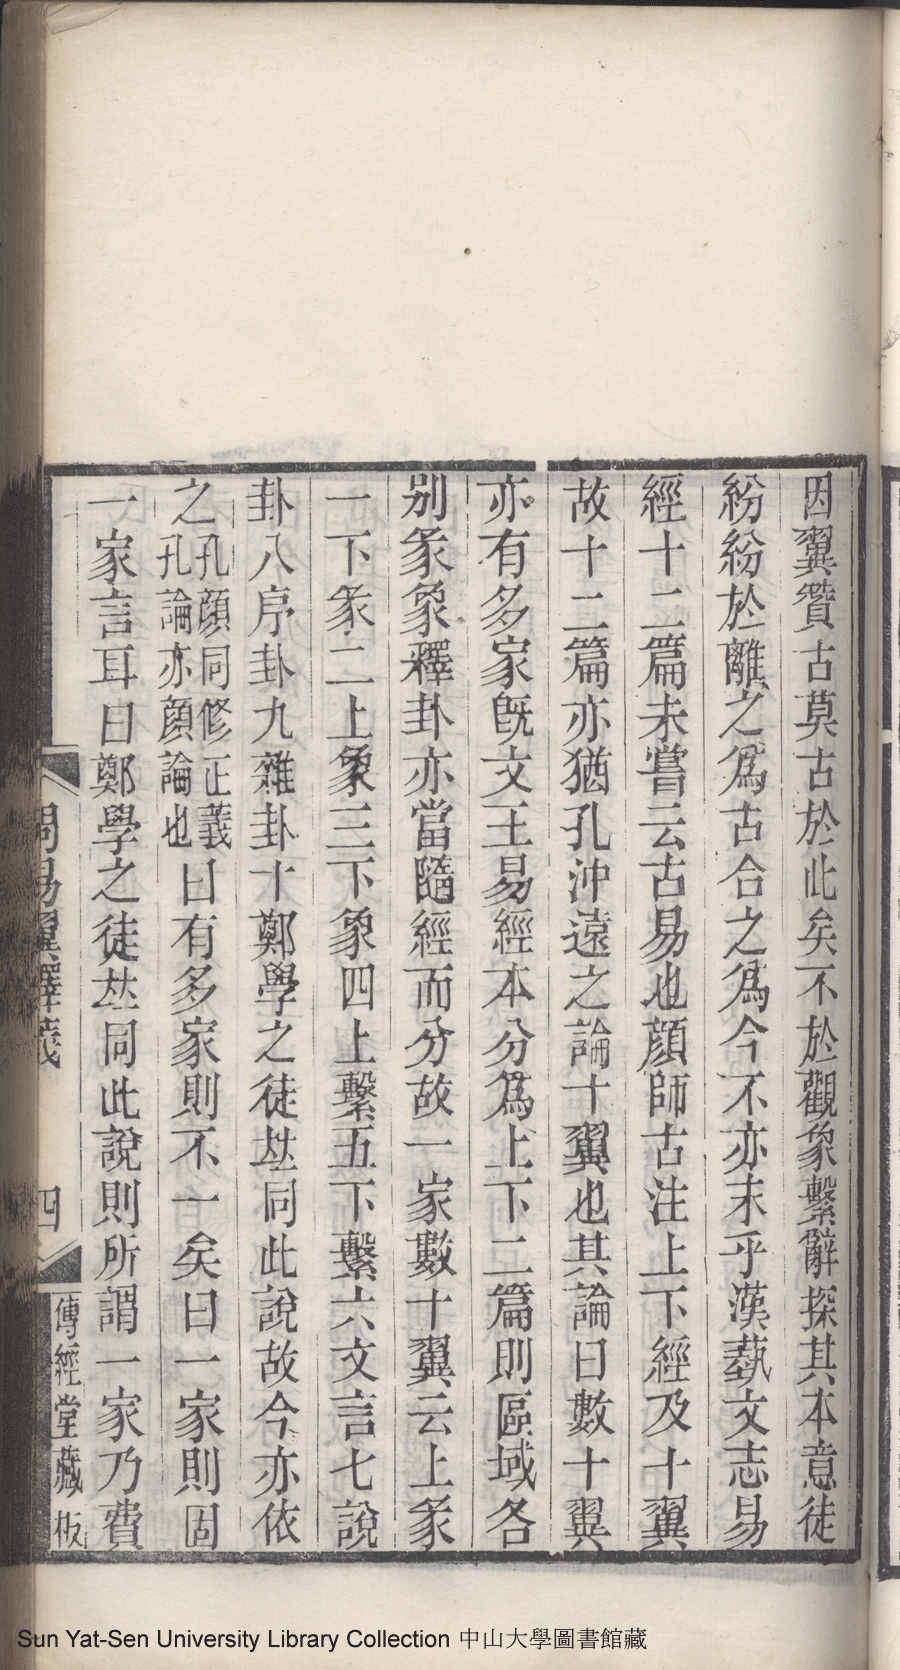 因翼贊古莫古於此矣不於觀象繫辭探其本意徒
紛紛於離之爲古合之爲今不亦末乎漢藝文志易
經十二篇未嘗云古易也顔師古注上下經及十翼
故十二篇亦猶孔沖遠之論十翼也其論曰數十翼
亦有多家旣文王易經本分爲上下二篇則區域各
別彖象釋卦亦當隨經而分故一家數十翼云上彖
一下彖二上象三下象四上繫五下繫六文言七說
卦八序卦九雜卦十鄭學之徒竝同此說故今亦依
之孔顔同修正義孔論亦顔論也曰有多家則不一矣曰一家則固
一家言耳曰鄭學之徒竝同此說則所謂一家乃費
周易翼釋義 四 傳經堂藏板
Sun Yat-Sen University Library Collection 中山大學圖書館藏